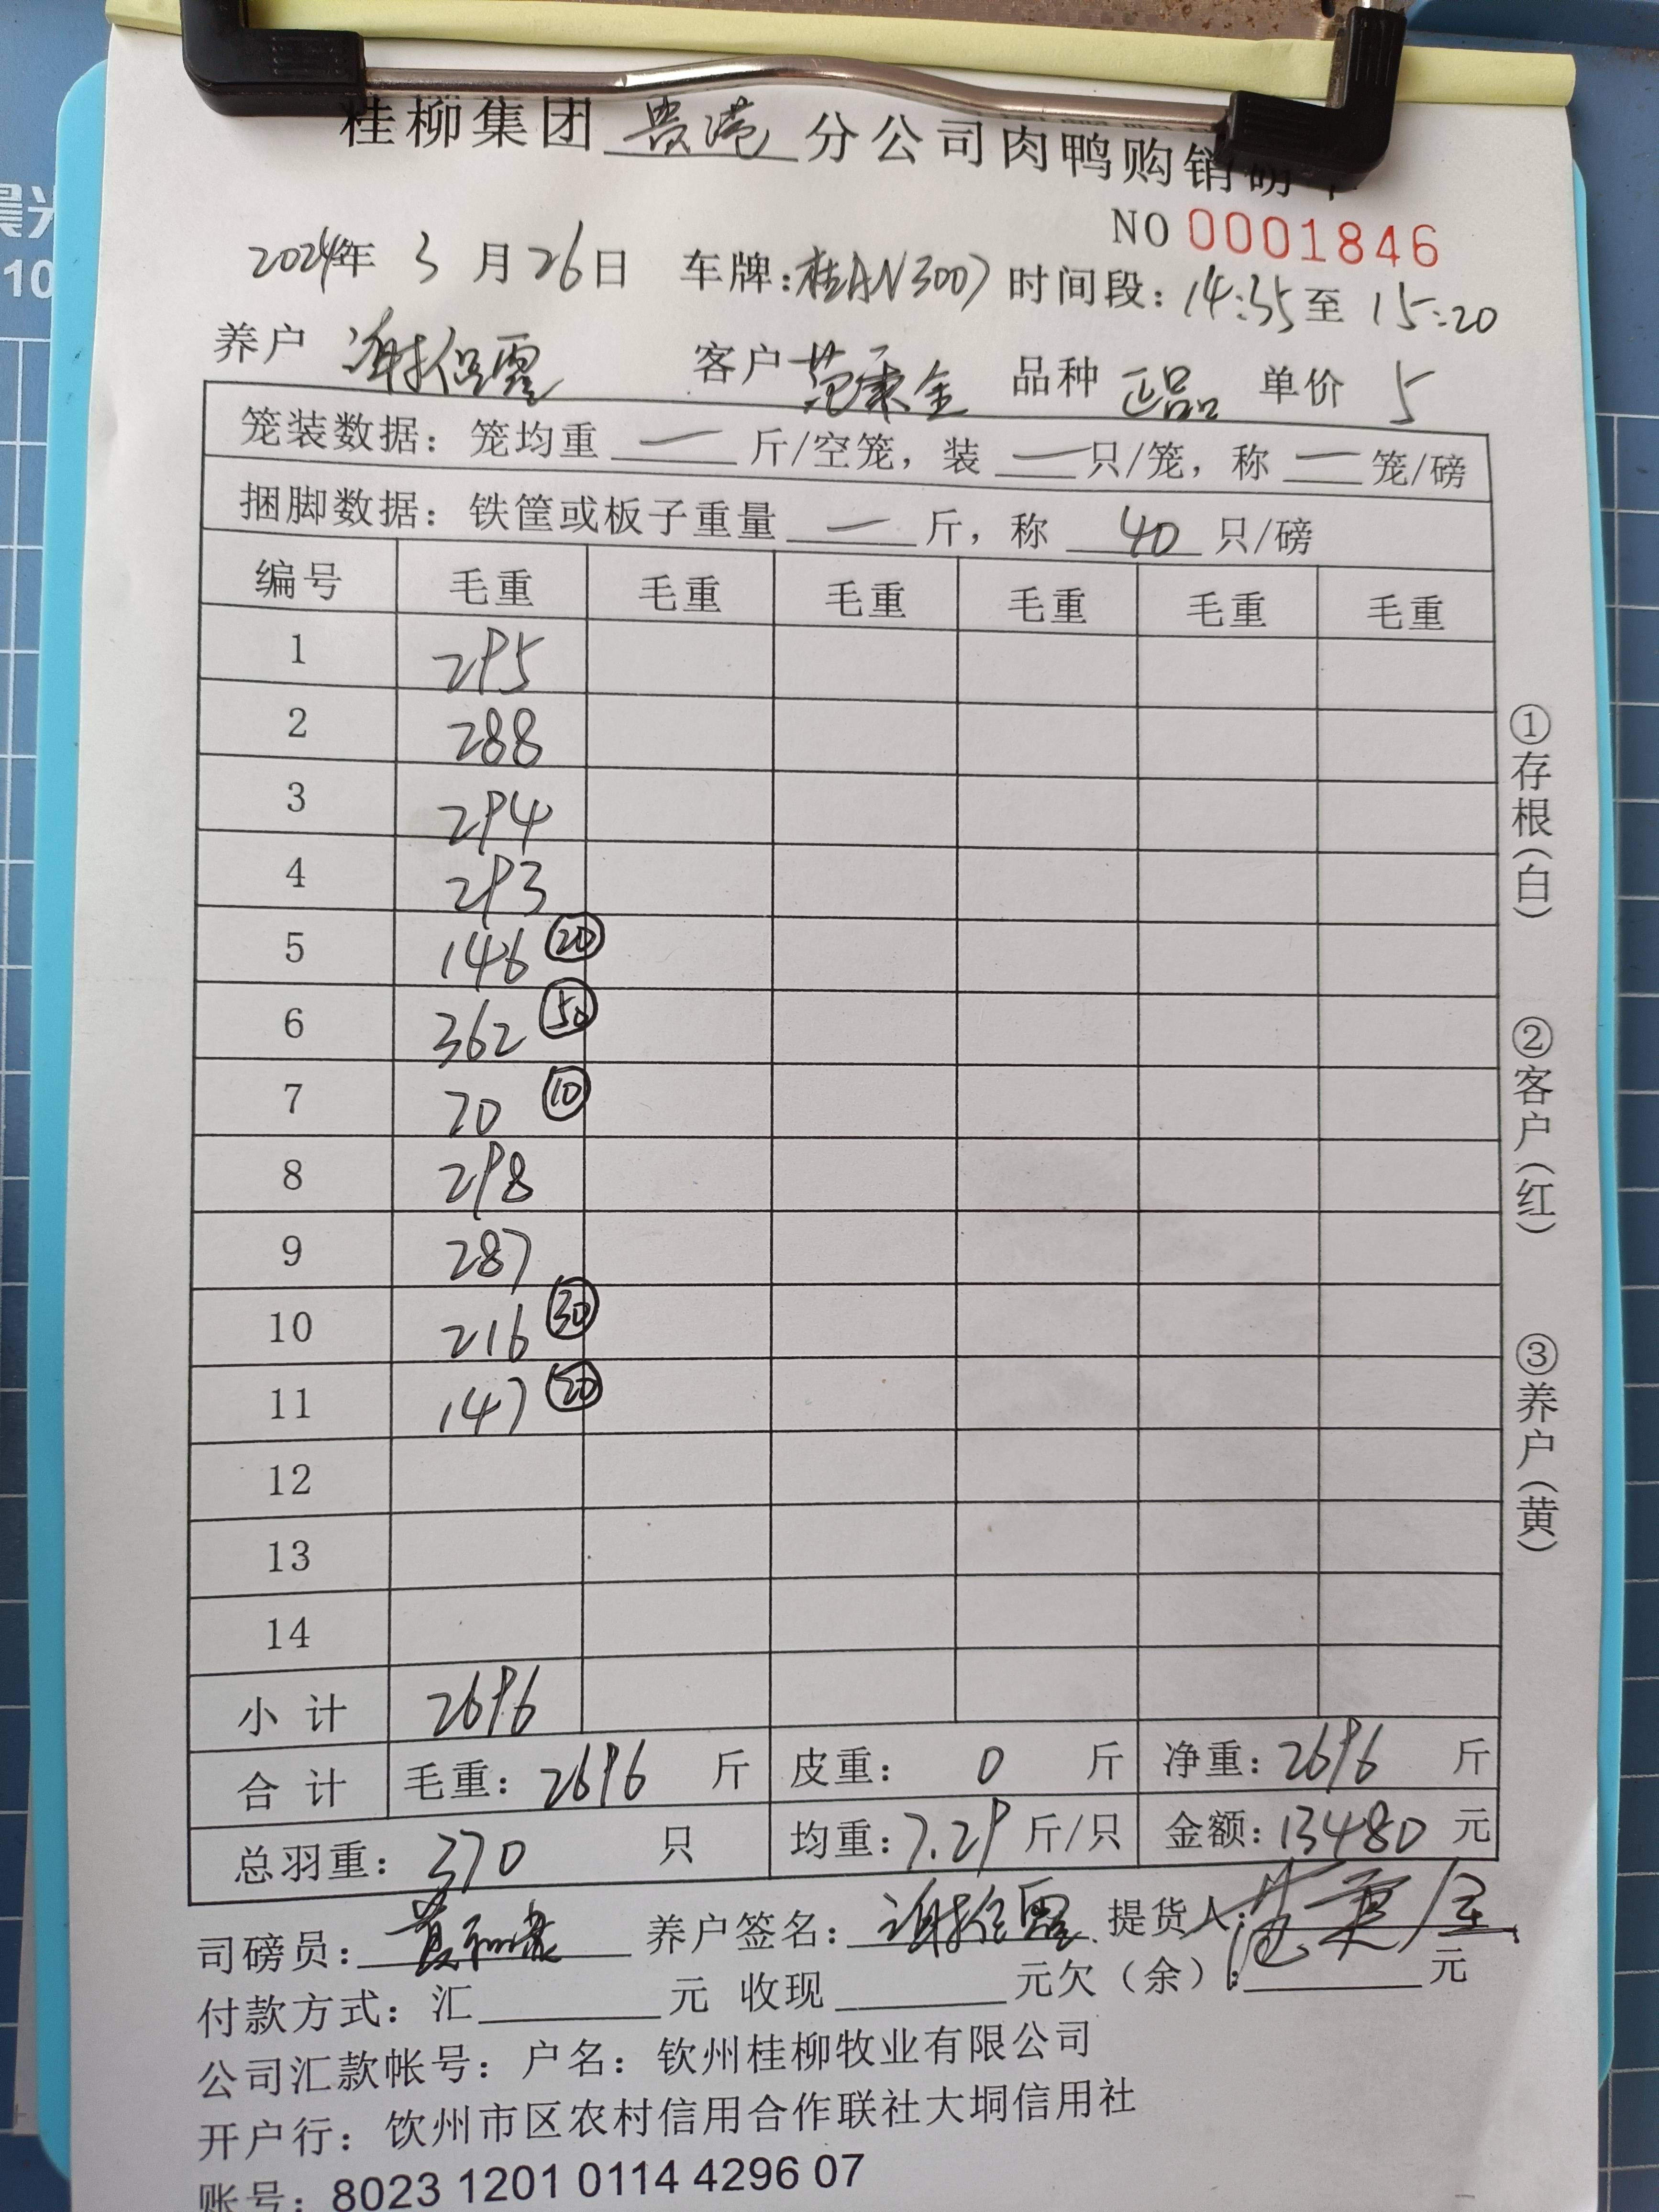 晨光
10
桂柳集团 贵港 分公司肉鸭购销磅单
NO 0001846
2024年 3 月 26 日 车牌:桂AN3007 时间段:14:35至 15:20
养户 谢择霞 客户 范秉金 品种 正品 单价 5
笼装数据:笼均重 — 斤/空笼,装 — 只/笼,称 — 笼/磅
捆脚数据:铁筐或板子重量 — 斤,称 40 只/磅
编号 毛重 毛重 毛重 毛重 毛重 毛重
1 295
2 288
3 294
4 293
5 146 ⑳
6 362 ㊿
7 70 ⑩
8 298
9 287
10 216 ㉚
11 147 ⑳
12
13
14
小计 2696
合计 毛重:2696 斤 皮重: 0 斤 净重:2696 斤
总羽重:370 只 均重:7.29 斤/只 金额:13480 元
司磅员: 养户签名: 提货人:范秉金
付款方式:汇 元 收现 元欠(余): 元
公司汇款帐号:户名:钦州桂柳牧业有限公司
开户行:钦州市区农村信用合作联社大垌信用社
账号:8023 1201 0114 4296 07
①存根(白)
②客户(红)
③养户(黄)